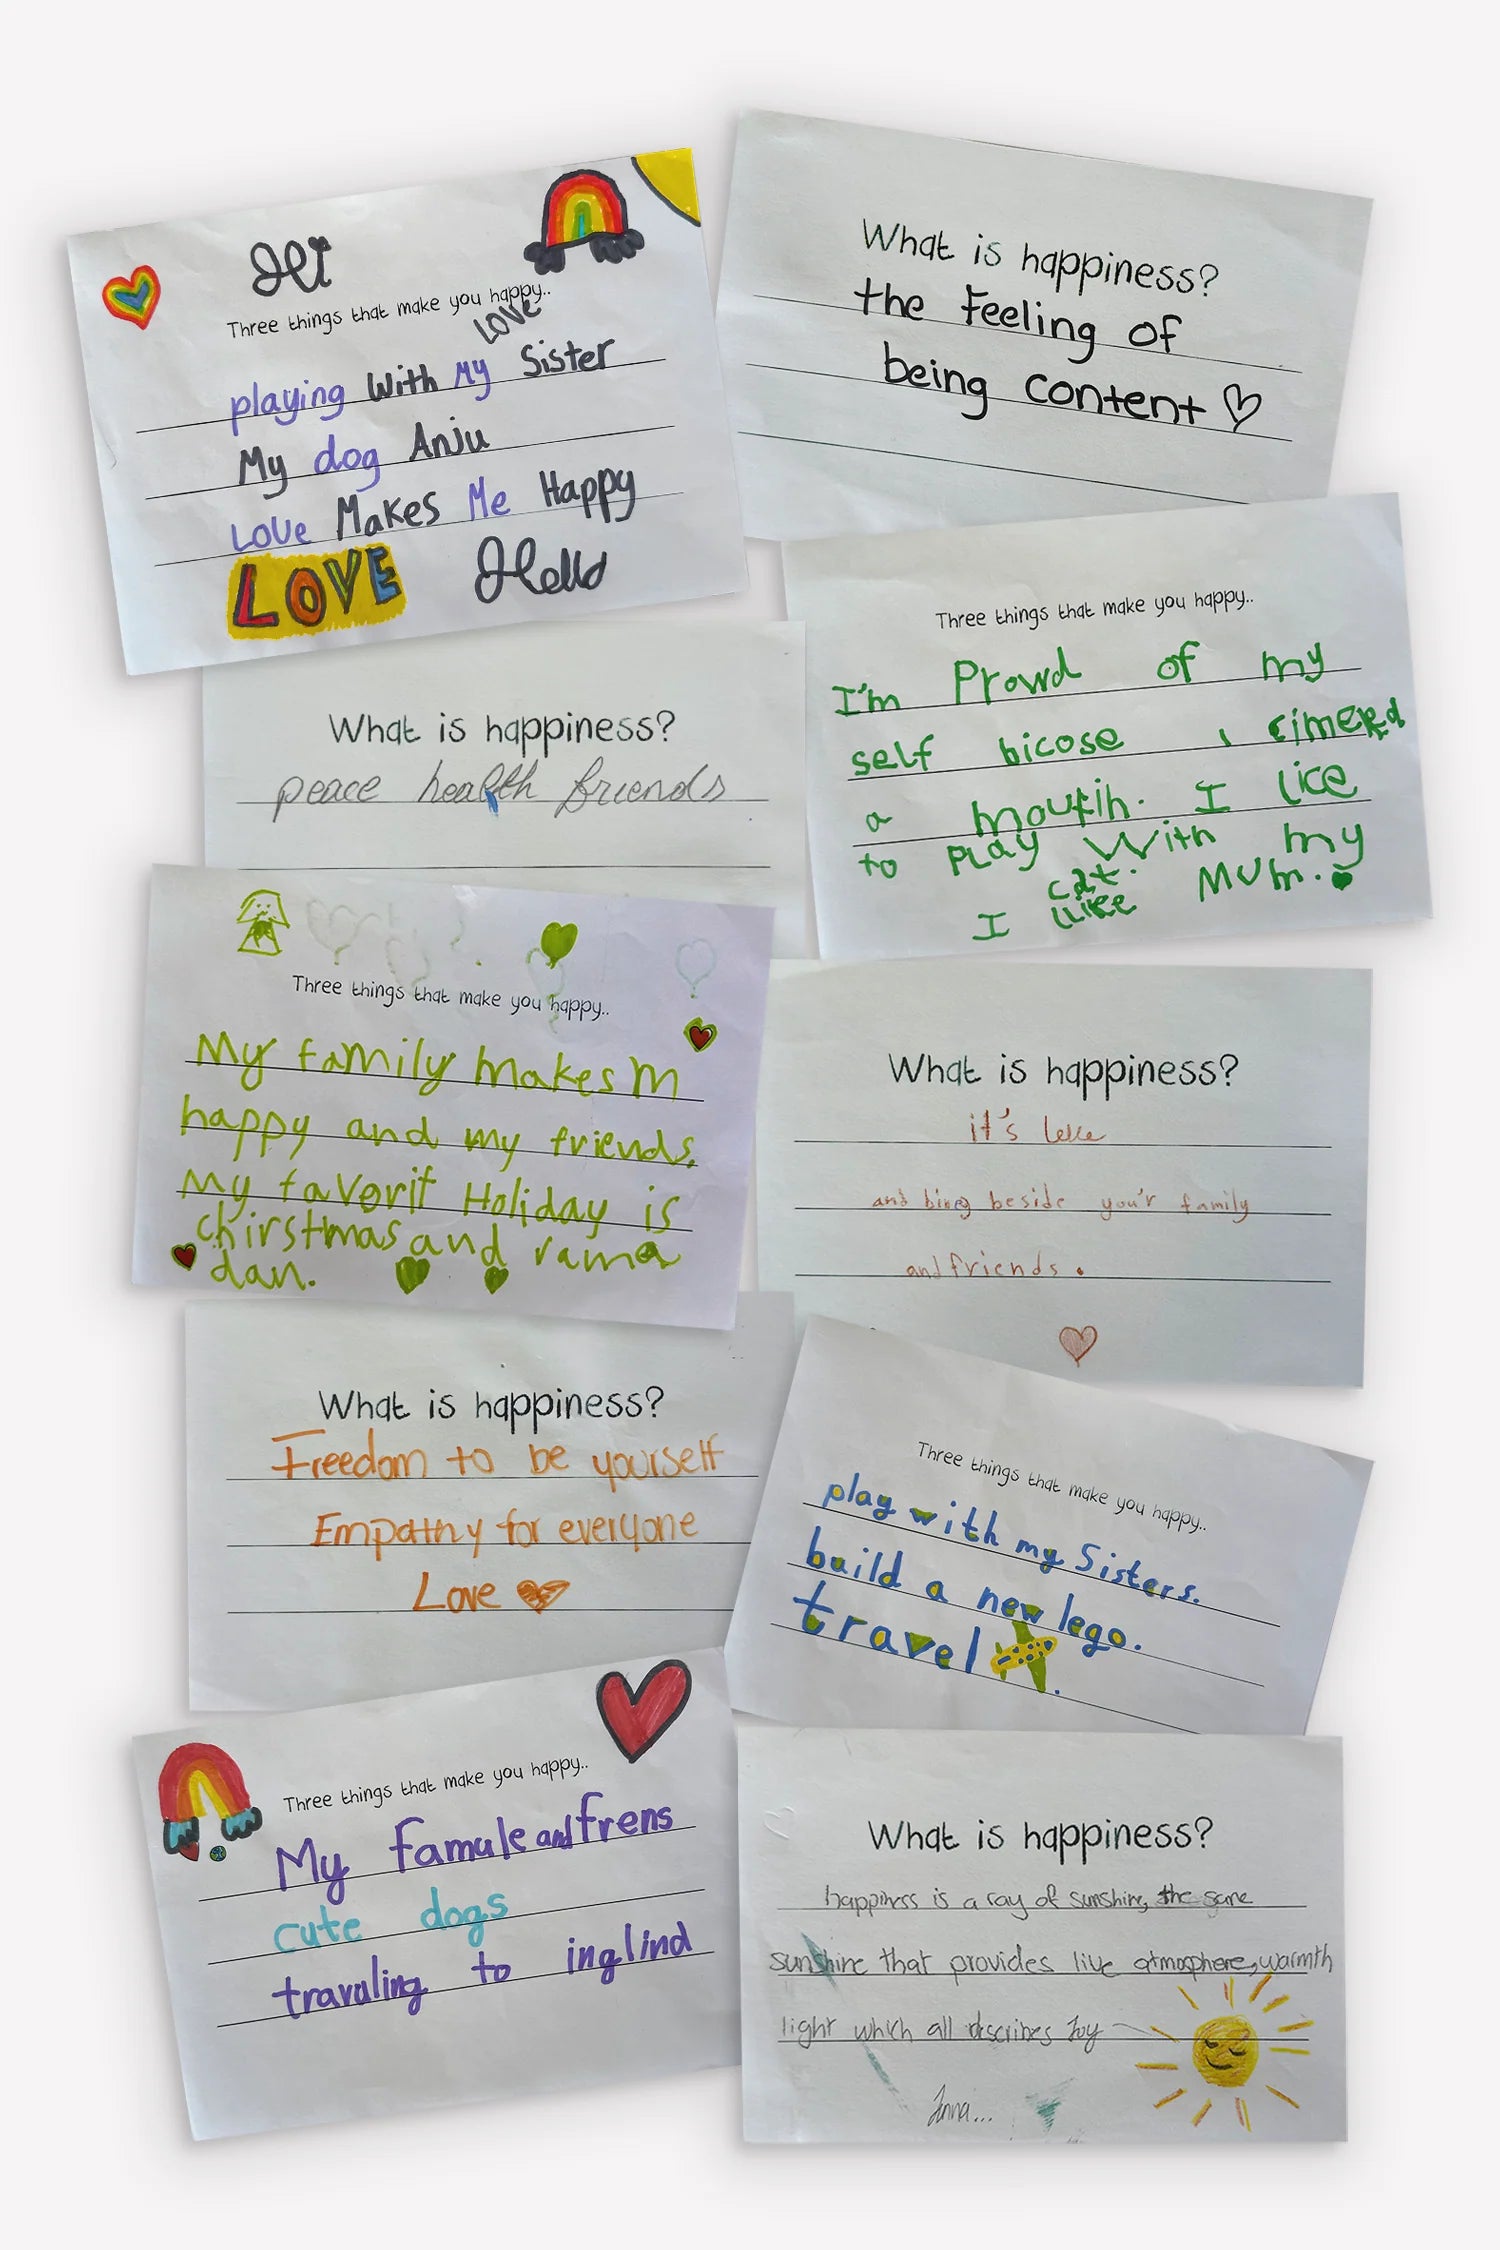 Hi
Three things that make you happy..
LOVE
playing With My Sister
My dog Anju
Love Makes Me Happy
LOVE Hello
What is happiness?
the Feeling of
being content
Three things that make you happy..
I'm Prowd of my
self bicose I climerd
a moutin. I lice
to PLay With my
cat.
I like MUM.
What is happiness?
peace health friends
Three things that make you happy..
My family makes m
happy and my friends.
My favorit Holiday is
chirstmas and rama
dan.
What is happiness?
it's
and bieng beside you'r family
and friends.
What is happiness?
Freedom to be yourself
Empathy for everyone
Love
Three things that make you happy..
play with my Sisters.
build a new lego.
travel.
Three things that make you happy..
My famule and frens
cute dogs
travuling to inglind
What is happiness?
happiness is a ray of sunshine, the same
sunshine that provides live atmosphere, warmth
light which all describes Joy